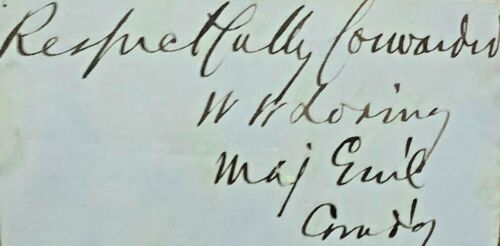 Respectfully forwarded
W W Loring
Maj Gen'l
Comd'g